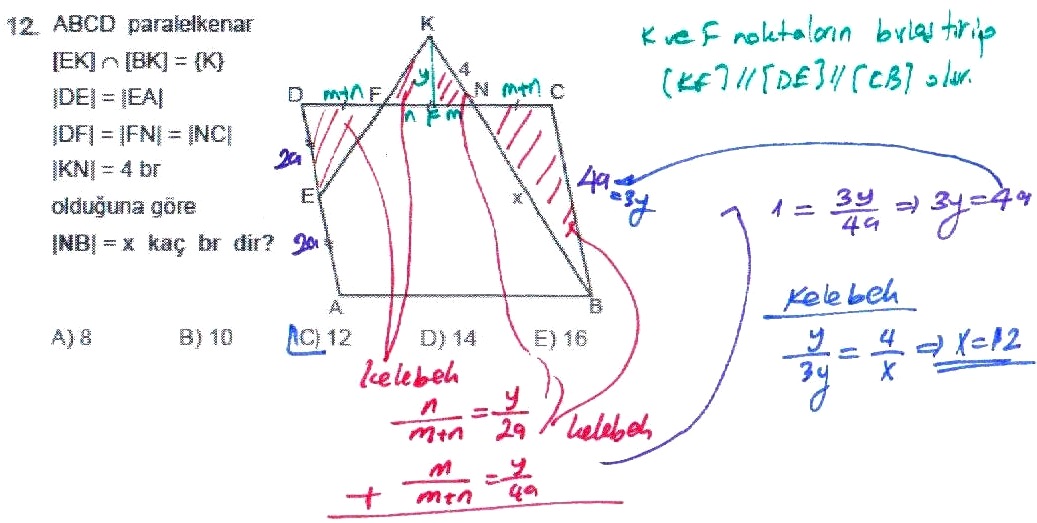 12. ABCD paralelkenar
[EK] ∩ [BK] = {K}
|DE| = |EA|
|DF| = |FN| = |NC|
|KN| = 4 br
olduğuna göre
|NB| = x kaç br dir?
A) 8 B) 10 C) 12 D) 14 E) 16
K
y 4
D m+n F N m+n C
n F m
2a
E
x
4a
=3y
2a
A B
K ve F noktaların birleştirip
[KF] // [DE] // [CB] olur.
1 = 3y/4a ⇒ 3y = 4a
Kelebek
y/3y = 4/x ⇒ x = 12
kelebek
n/m+n = y/2a
kelebek
+ m/m+n = y/4a